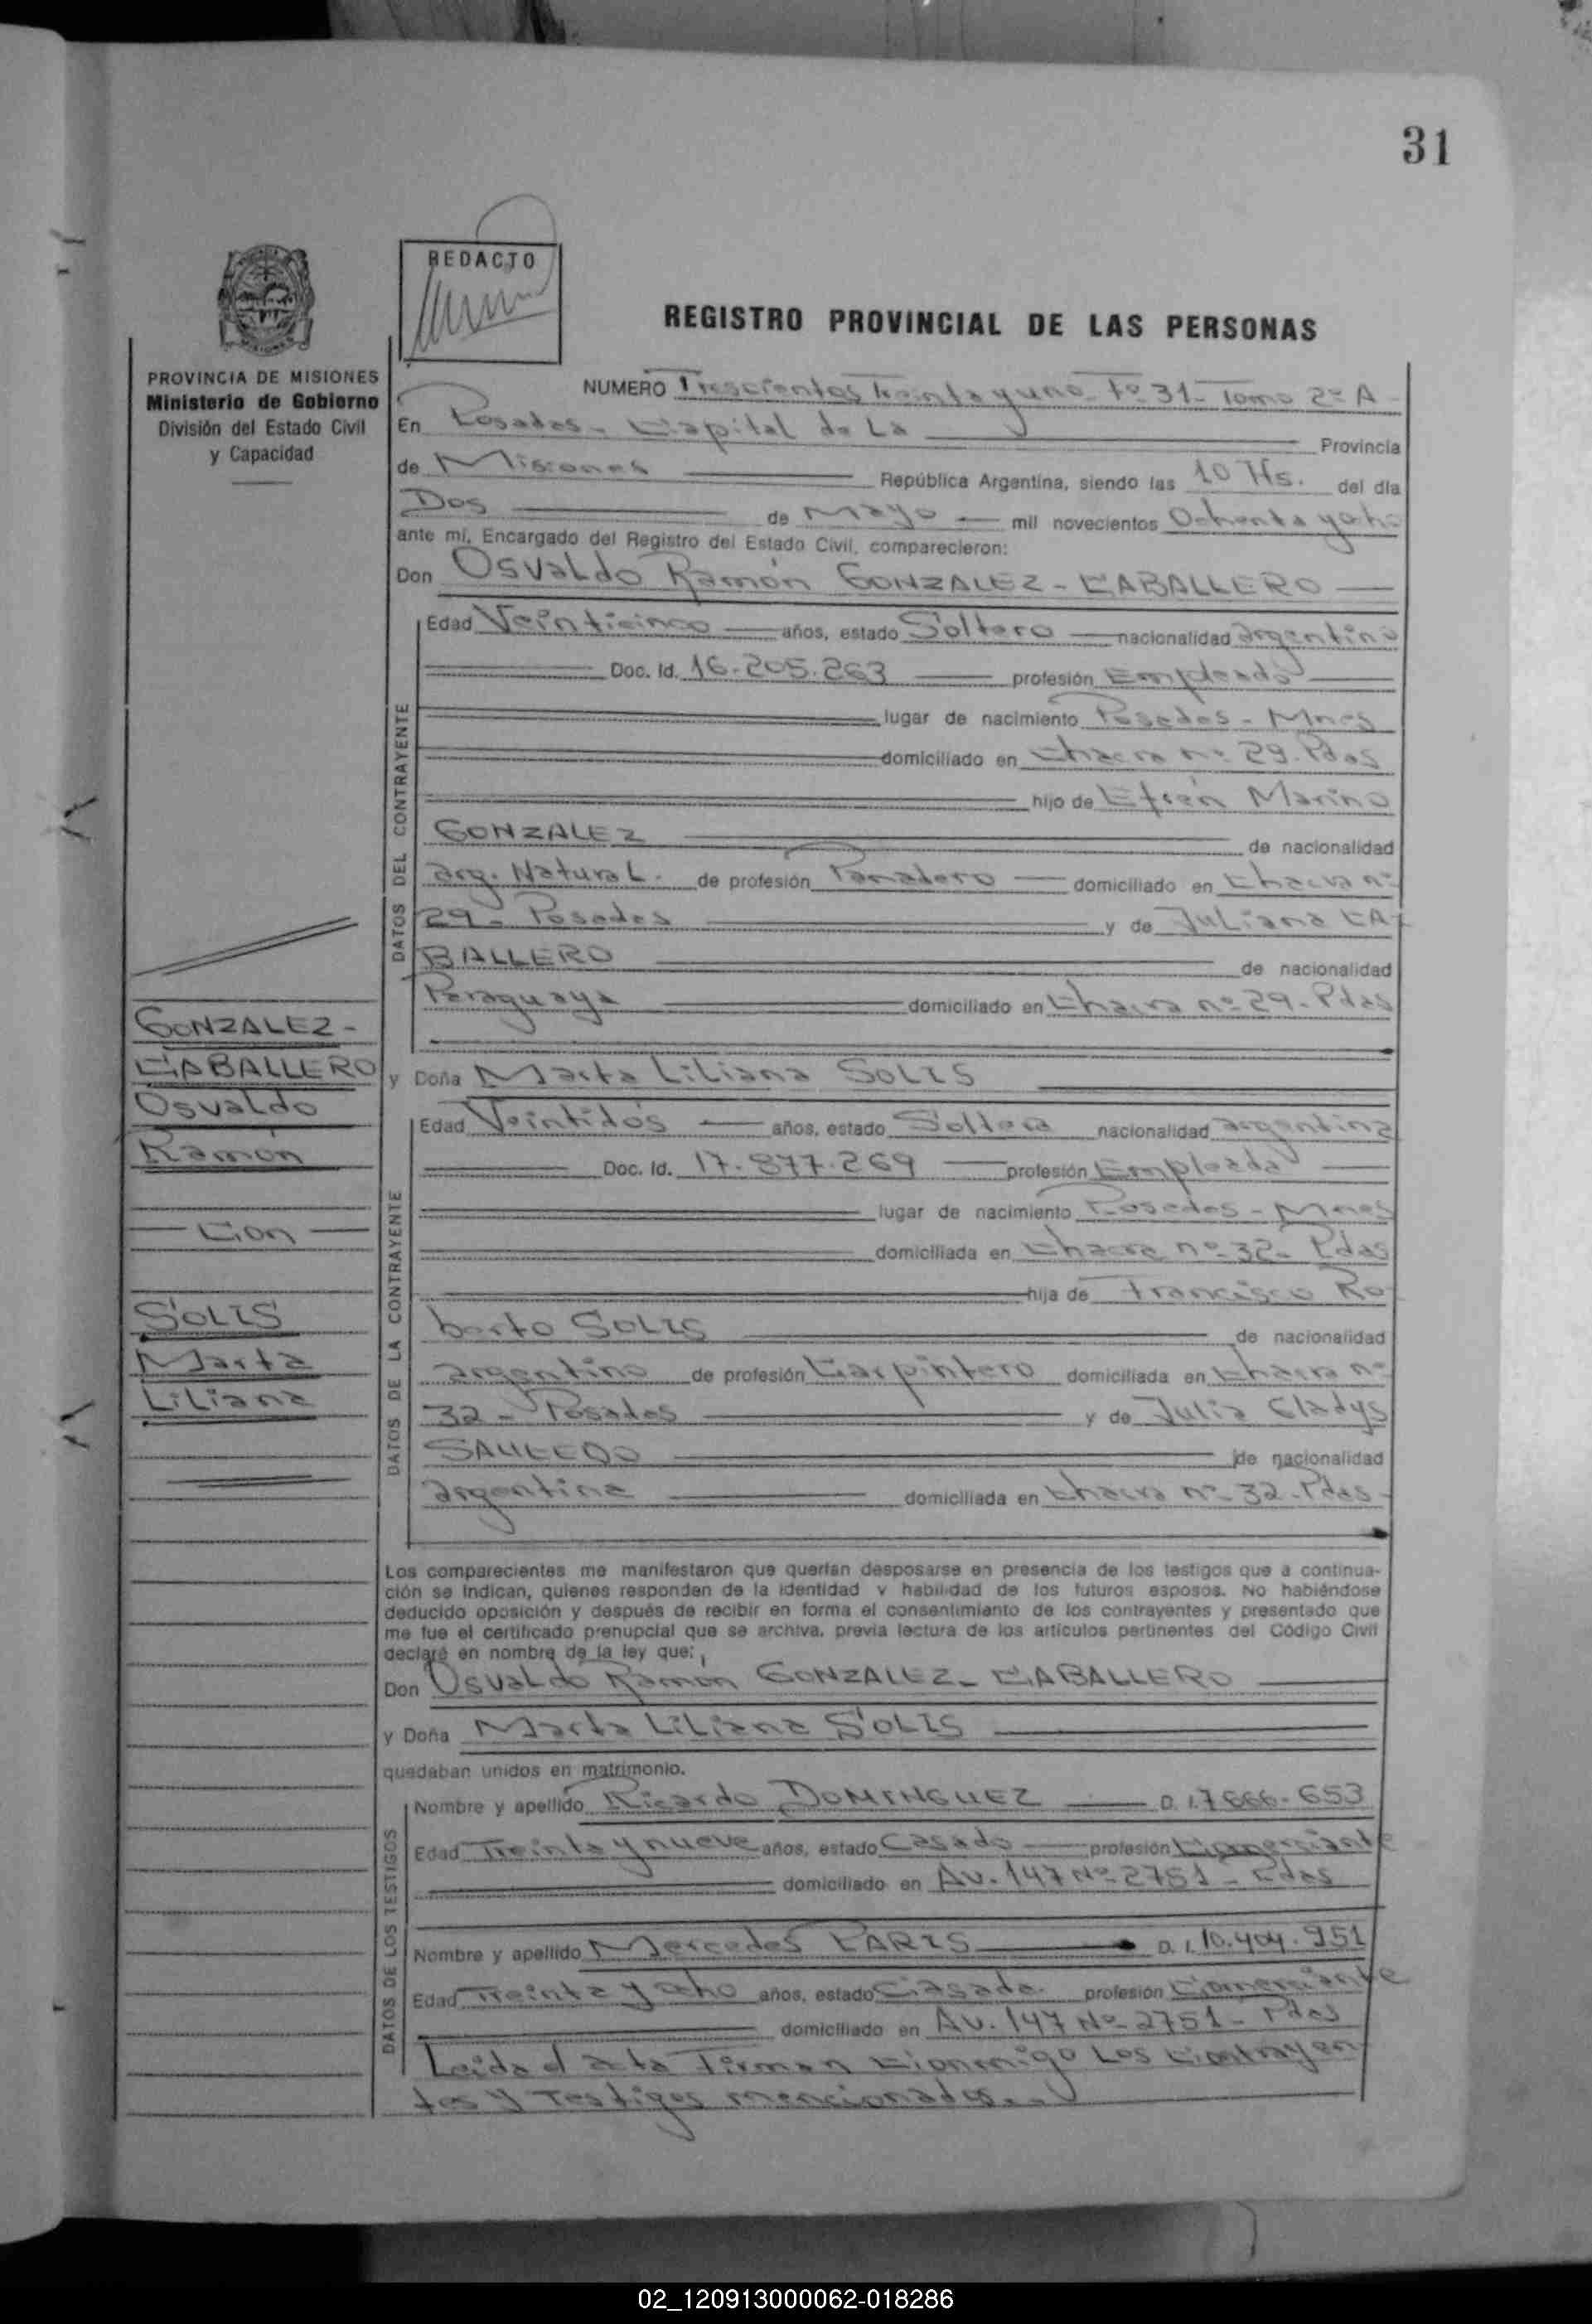 31
REDACTO
REGISTRO PROVINCIAL DE LAS PERSONAS
PROVINCIA DE MISIONES
Ministerio de Gobierno
División del Estado Civil
y Capacidad
NUMERO Trescientos treinta y uno Fº 31- Tomo 2º A -
En Posadas - Capital de La Provincia
de Misiones República Argentina, siendo las 10 Hs. del día
Dos de Mayo mil novecientos Ochenta y ocho
ante mí, Encargado del Registro del Estado Civil, comparecieron:
Don Osvaldo Ramón GONZALEZ - CABALLERO
DATOS DEL CONTRAYENTE
Edad Veinticinco años, estado Soltero nacionalidad argentino
Doc. Id. 16.205.263 profesión Empleado
lugar de nacimiento Posadas - Mnes
domiciliado en Chacra nº 29. Pdas
hijo de Efren Marino
GONZALEZ de nacionalidad
arg. Natural. de profesión Panadero domiciliado en Chacra nº
29 - Posadas y de Juliana CA-
BALLERO de nacionalidad
Paraguaya domiciliado en Chacra nº 29 - Pdas
GONZALEZ -
CABALLERO
Osvaldo
Ramón
Con
SOLIS
Marta
Liliana
y Doña Marta Liliana SOLIS
DATOS DE LA CONTRAYENTE
Edad Veintidós años, estado Soltera nacionalidad argentina
Doc. Id. 17.877.269 profesión Empleada
lugar de nacimiento Posadas - Mnes
domiciliada en Chacra nº 32 - Pdas
hija de Francisco Ro
berto SOLIS de nacionalidad
argentino de profesión Carpintero domiciliada en Chacra nº
32 - Posadas y de Julia Gladys
de nacionalidad
argentina domiciliada en Chacra nº 32 - Pdas -
Los comparecientes me manifestaron que querían desposarse en presencia de los testigos que a continua-
ción se indican, quienes responden de la identidad y habilidad de los futuros esposos. No habiéndose
deducido oposición y después de recibir en forma el consentimiento de los contrayentes y presentado que
me fue el certificado prenupcial que se archiva, previa lectura de los artículos pertinentes del Código Civil
declaré en nombre de la ley que:
Don Osvaldo Ramón GONZALEZ - CABALLERO
y Doña Marta Liliana SOLIS
quedaban unidos en matrimonio.
DATOS DE LOS TESTIGOS
Nombre y apellido Ricardo DOMINGUEZ D. I. 7.666.653
Edad Treinta y nueve años, estado Casado profesión Comerciante
domiciliado en Av. 147 Nº 2751 - Pdas
Nombre y apellido Mercedes PARIS D. I. 10.404.951
Edad Treinta y ocho años, estado Casada profesión Comerciante
domiciliado en Av. 147 Nº 2751 - Pdas
Leida el acta Firman Conmigo Los Contrayen
tes y Testigos mencionados...
02_120913000062-018286